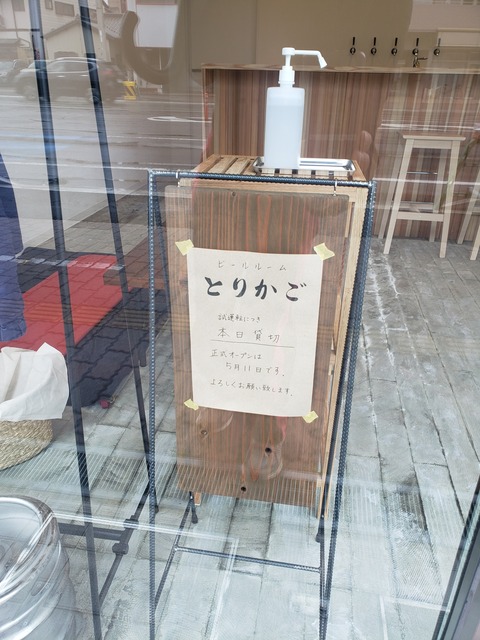 ビールルーム
とりかご
試運転につき
本日貸切
正式オープンは
5月11日です。
よろしくお願い致します。